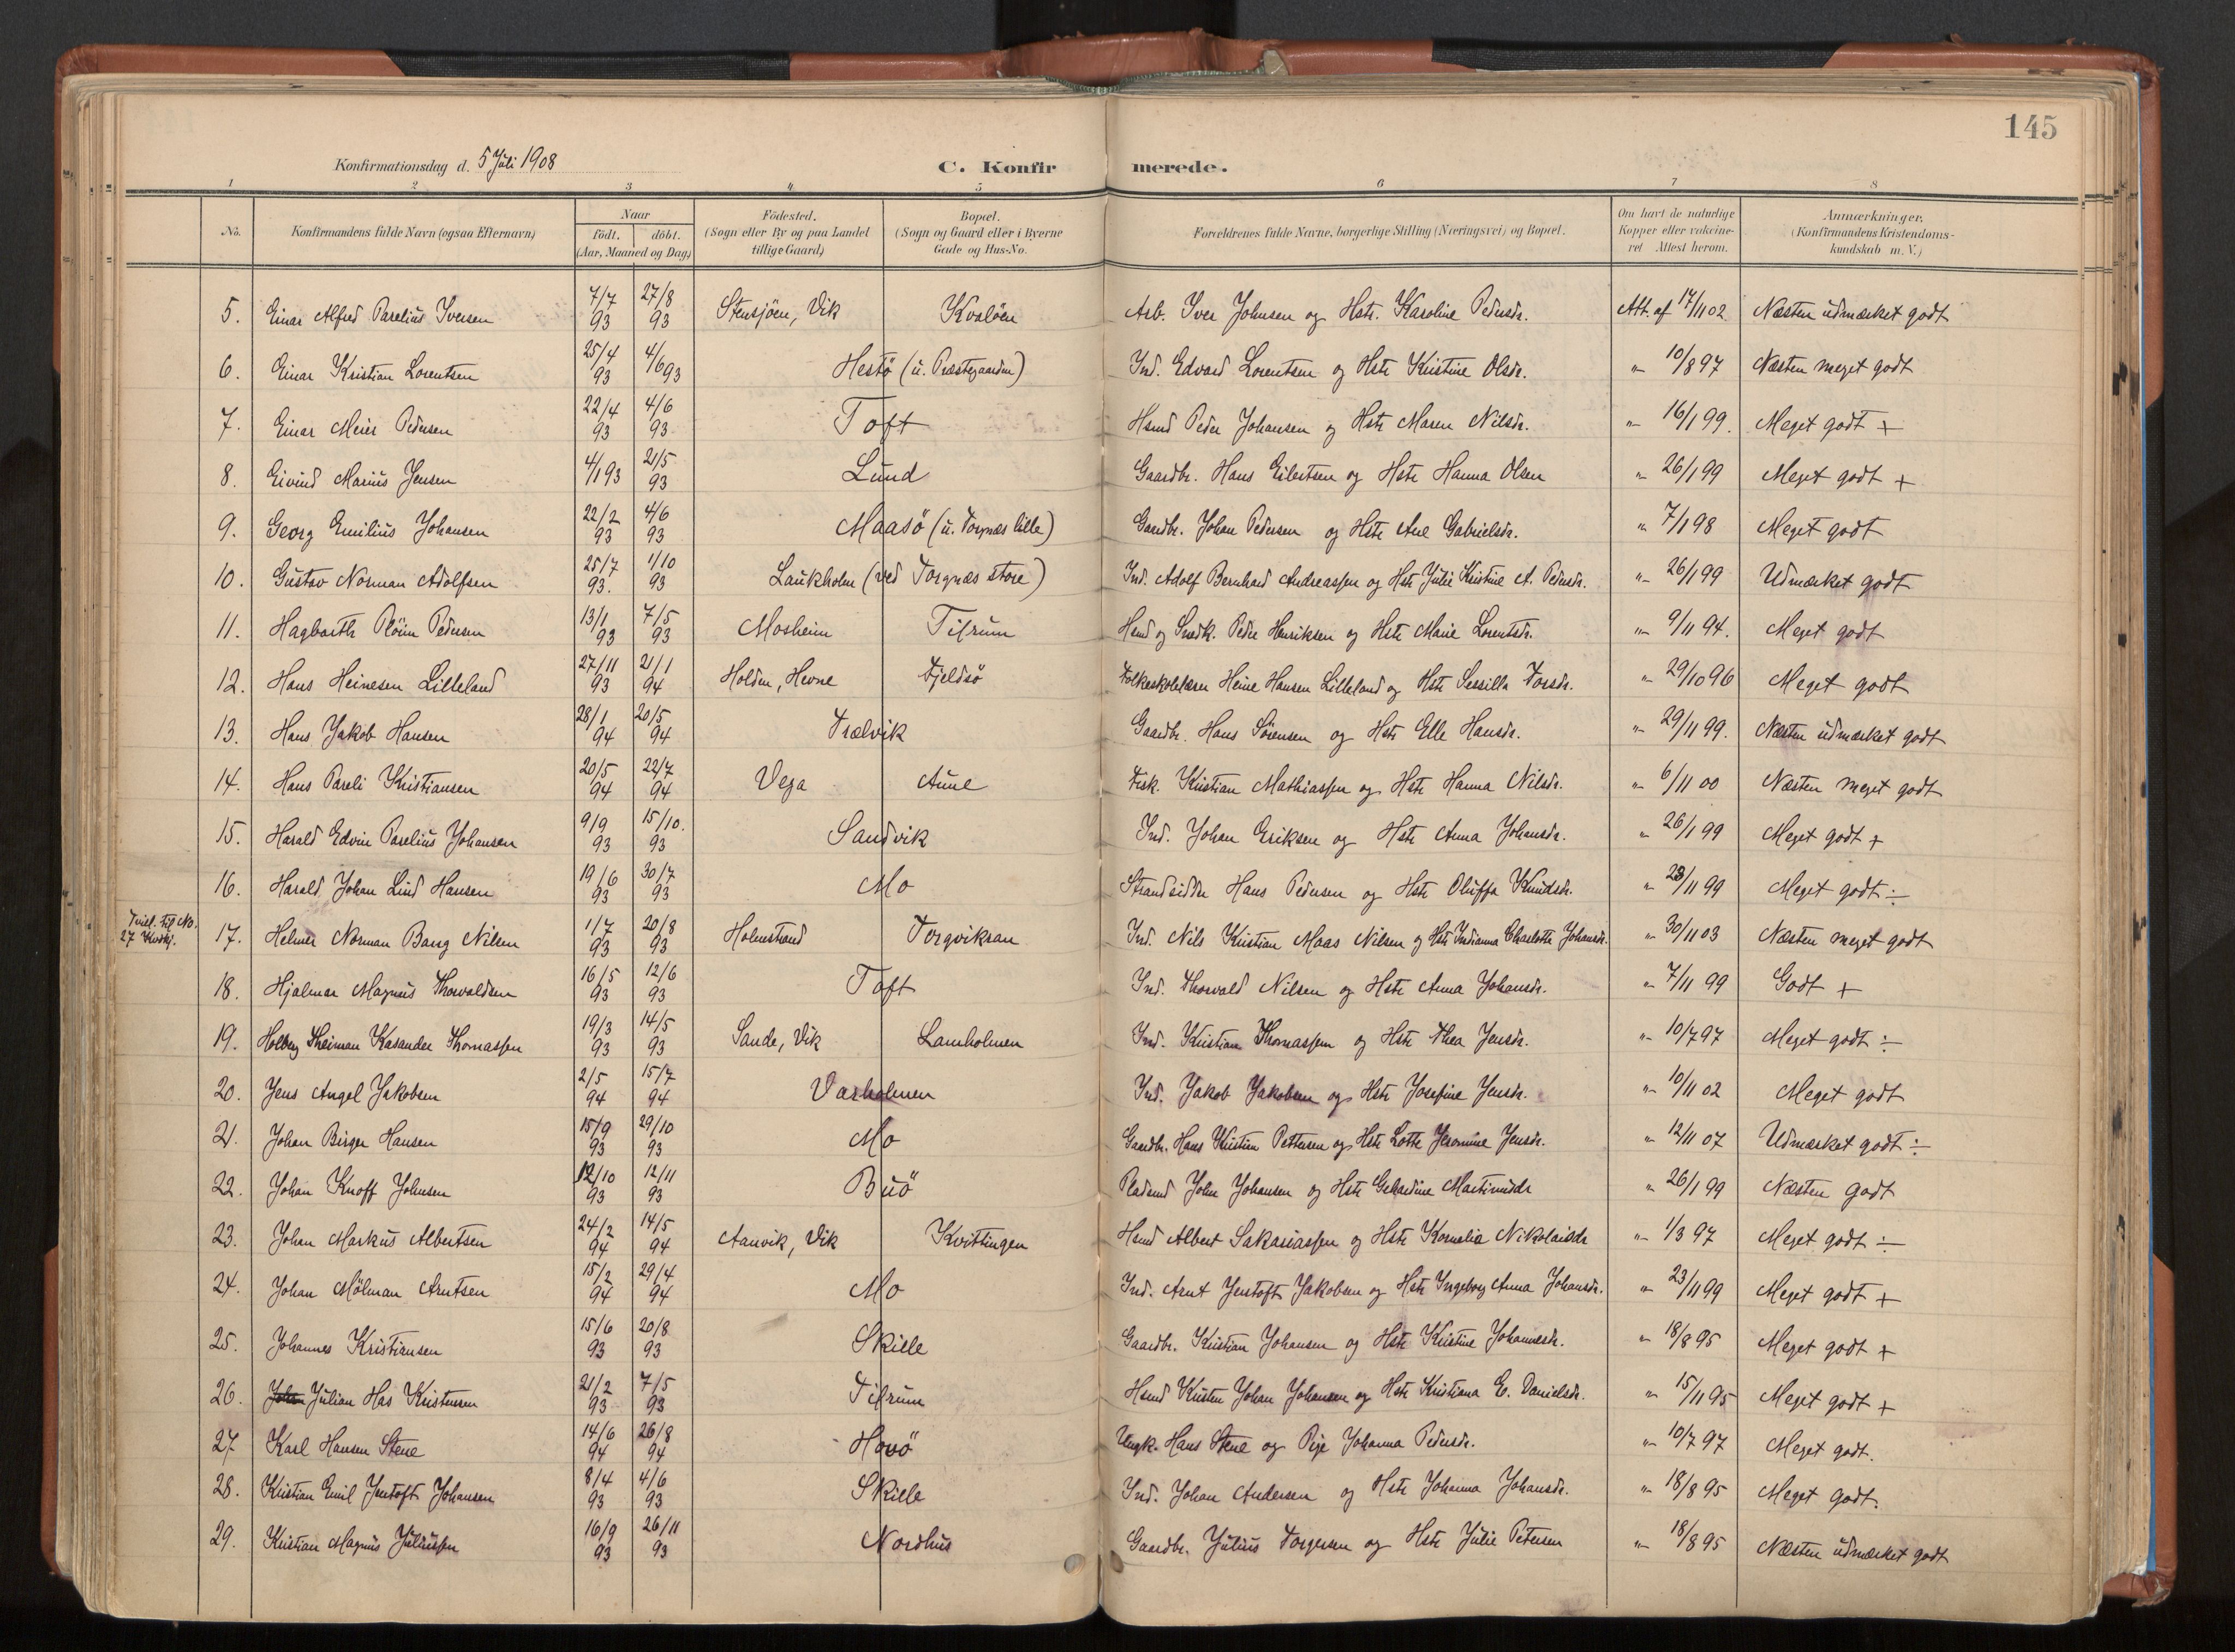 145
Konfirmationsdag d. 5 Juli 1908
C. Konfirmerede.
1 2 3 4 5 6 7 8
No. Konfirmandens fulde Navn (ogsaa Efternavn) Naar födt. döbt. (Aar, Maaned og Dag) Födested. (Sogn eller By og paa Landet tillige Gaard) Bopæl. (Sogn og Gaard eller i Byerne Gade og Hus-No. Forældrenes fulde Navne, borgerlige Stilling (Næringsvei) og Bopæl. Om havt de naturlige Kopper eller vakcineret Attest herom. Anmærkninger. (Konfirmandens Kristendomskundskab m. V.)
5. Einar Alfred Parelius Iversen 7/7 93 27/8 93 Stensjöen, Vik Kvalöen Arb. Iver Johnsen og Hstr. Karoline Pedersdr. Att. af 17/11 02 Næsten udmærket godt
6. Einar Kristian Lorentsen 25/4 93 4/6 93 Hestö (u. Præstegaarden) Ind. Edvard Lorentsen og Hstr Kristine Olsdr. " 10/8 97 Næsten meget godt
7. Einar Meier Pedersen 22/4 93 4/6 93 Toft Hsmd Peder Johansen og Hstr Maren Nilsdr. " 16/1 99. Meget godt +
8. Eivind Marius Jensen 4/1 93 21/5 93 Lund Gaardbr. Hans Eilertsen og Hstr Hanna Olsen " 26/1 99 Meget godt +
9. Georg Emilius Johansen 22/2 93 4/6 93 Maasö (u. Torgnæs lille) Gaardbr. Johan Pedersen og Hstr Ane Gabrielsdr. " 7/1 98 Meget godt
10. Gustav Norman Adolfsen 25/7 93. 1/10 93 Laukholm (ved Torgnæs store) Ind. Adolf Bernhard Andreassen og Hstr Julie Kristine A. Pedersdr. " 26/1 99 Udmærket godt
11. Hagbarth Plöim Pedersen 13/1 93 7/5 93 Mosheim Tilrum Hsmd og Snedk. Peder Henriksen og Hstr Marie Lorentsdr. " 9/11 94. Meget godt
12. Hans Heinesen Lilleland 27/11 93 21/1 94 Holden, Hevne Fjeldsö Folkeskolelærer Heine Hansen Lilleland og Hstr Sessilla Torsdr. " 29/10 96 Meget godt
13. Hans Jakob Hansen 28/1 94 20/5 94 Trælvik Gaardbr. Hans Sörensen og Hstr Elle Hansdr. " 29/11 99. Næsten udmærket godt
14. Hans Pareli Kristiansen 20/5 94 22/7 94 Vega Aune Fisk. Kristian Mathiassen og Hstr Hanna Nilsdr. " 6/11 00 Næsten meget godt
15. Harald Edvin Parelius Johansen 9/9 93 15/10. 93 Sandvik Ind. Johan Eriksen og Hstr Anna Johansdr. " 26/1 99 Meget godt +
16. Harald Johan Lind Hansen 19/6 93 30/7 93 Mo Strandsidder Hans Pedersen og Hstr Oluffa Knudsdr. " 23/11 99 Meget godt ÷
Tvil. til No. 27
17. Helmer Norman Bang Nilsen 1/7 93 20/8 93 Holmstrand Torgvikran Ind. Nils Kristian Maas Nilsen og Hstr Indianna Charlotte Johansdr. " 30/11 03 Næsten meget godt
18. Hjalmar Magnus Thorvaldsen 16/5 93 12/6 93 Toft Ind. Thorvald Nilsen og Hstr Anna Johansdr. " 7/11 99 Godt +
19. Holberg Theiman Kasander Thomassen 19/3 93 14/5 93 Sande, Vik Lamholmen Ind. Kristian Thomassen og Hstr Thea Jensdr. " 10/7 97 Meget godt ÷
20. Jens Angel Jakobsen 2/5 94 15/7 94 Varholmen Ind. Jakob Jakobsen og Hstr Josefine Jensdr. " 10/11 02 Meget godt
21. Johan Birger Hansen 15/9 93 29/10 93 Mo Gaardbr. Hans Kristian Pettersen og Hstr Lotte Jeronine Jensdr. " 12/11 07 Udmærket godt ÷
22. Johan Knoff Johnsen 12/10 93 12/11 93 Buö Pladsmd John Johansen og Hstr Gerhardine Martinusdr " 26/1 99 Næsten godt
23. Johan Markus Albertsen 24/2 94 14/5 94 Aanvik, Vik Kvittingen Hsmd Albert Sakariassen og Hstr Kornelia Nikolaisdr " 1/3 97 Meget godt ÷
24. Johan Mölman Arntsen 15/2 94 29/4 94 Mo Ind. Arnt Jentoft Jakobsen og Hstr Ingeborg Anna Johansdr. " 23/11 99 Meget godt +
25. Johannes Kristiansen 15/6 93 20/8 93 Skille Gaardbr. Kristian Johansen og Hstr Kristine Johannesdr. " 18/8 95 Meget godt +
26. Johan Julian Has Kristensen 21/2 93 7/5 93 Tilrum Hsmd Kristen Johan Johansen og Hstr Kristiana E. Danielsdr. " 15/11 95 Meget godt +
27 Karl Hansen Stene 14/6 94 26/8 94 Havö Ungk. Hans Stene og Pige Johanna Pedersdr. " 10/7 97 Meget godt.
28. Kristian Emil Jentoft Johansen 8/4 93 4/6 93 Skille Ind. Johan Andersen og Hstr Johanna Johansdr. " 18/8 95 Meget godt.
29. Kristian Magnus Juliussen 16/9 93 26/11 93 Nordhus Gaardbr. Julius Torgersen og Hstr Julie Petersen " 18/8 95 Næsten udmærket godt